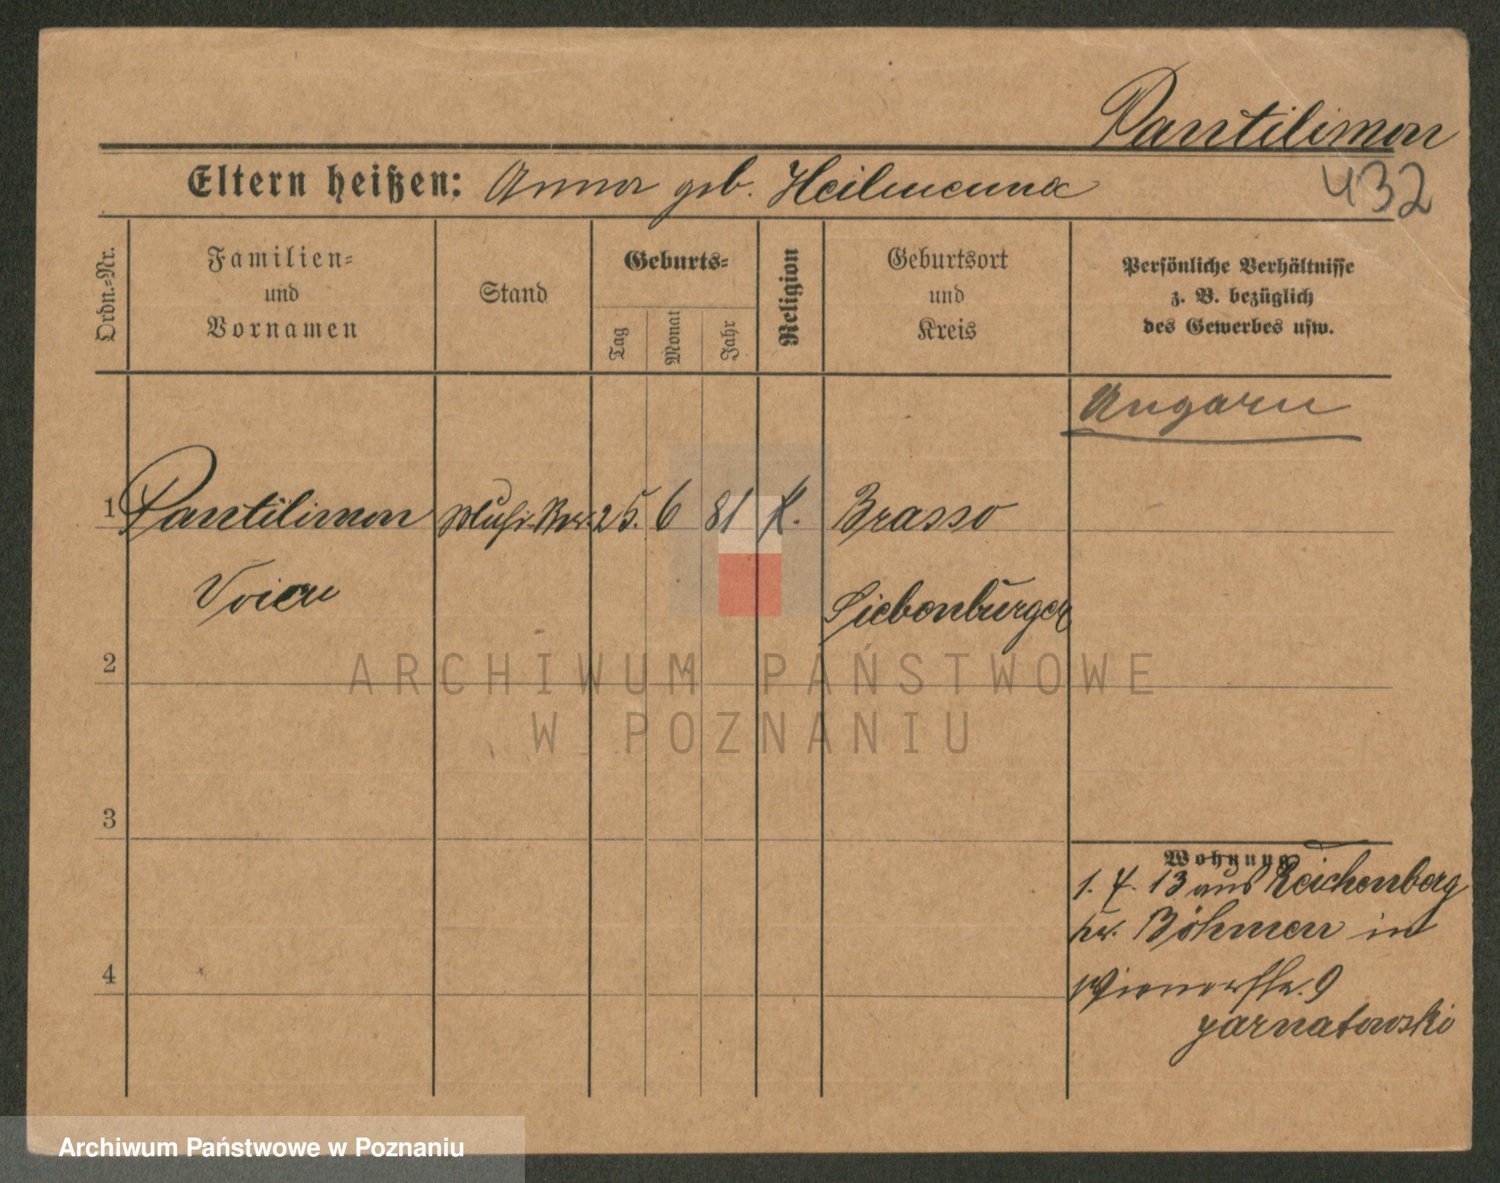 Pantilimon
432
Eltern heißen: Anna geb. Heilmenna
Ordn.-Nr.
Familien-
und
Vornamen
Stand
Geburts-
Tag
Monat
Jahr
Religion
Geburtsort
und
Kreis
Persönliche Verhältnisse
z. B. bezüglich
des Gewerbes usw.
Ungarn
1 Pantilimon 25. 6 81 K. Brasso
Voicu Siebenbürgen
2
3
4
Wohnung
1. 4. 13 aus Reichenberg
Böhmen in
Wienerstr. 9
Jarnatowski
ARCHIWUM PAŃSTWOWE
W POZNANIU
Archiwum Państwowe w Poznaniu